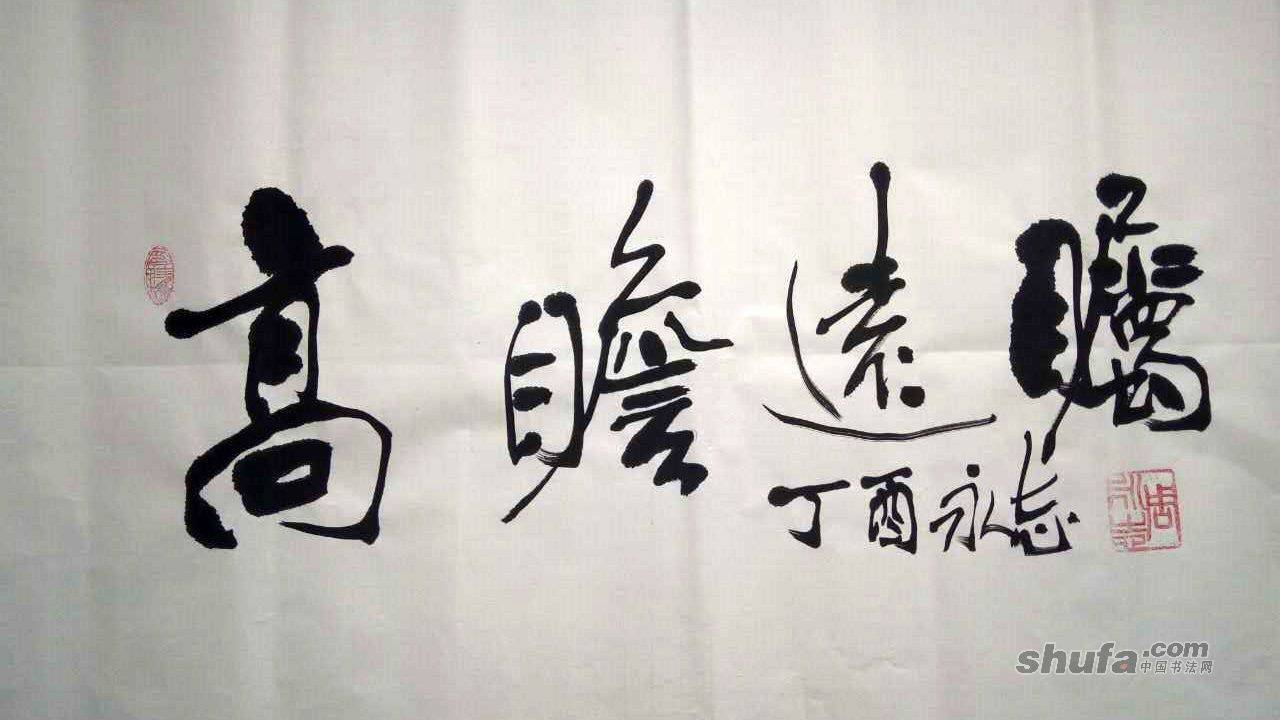 高瞻遠矚
丁酉永志
周永志
shufa.com
中国书法网